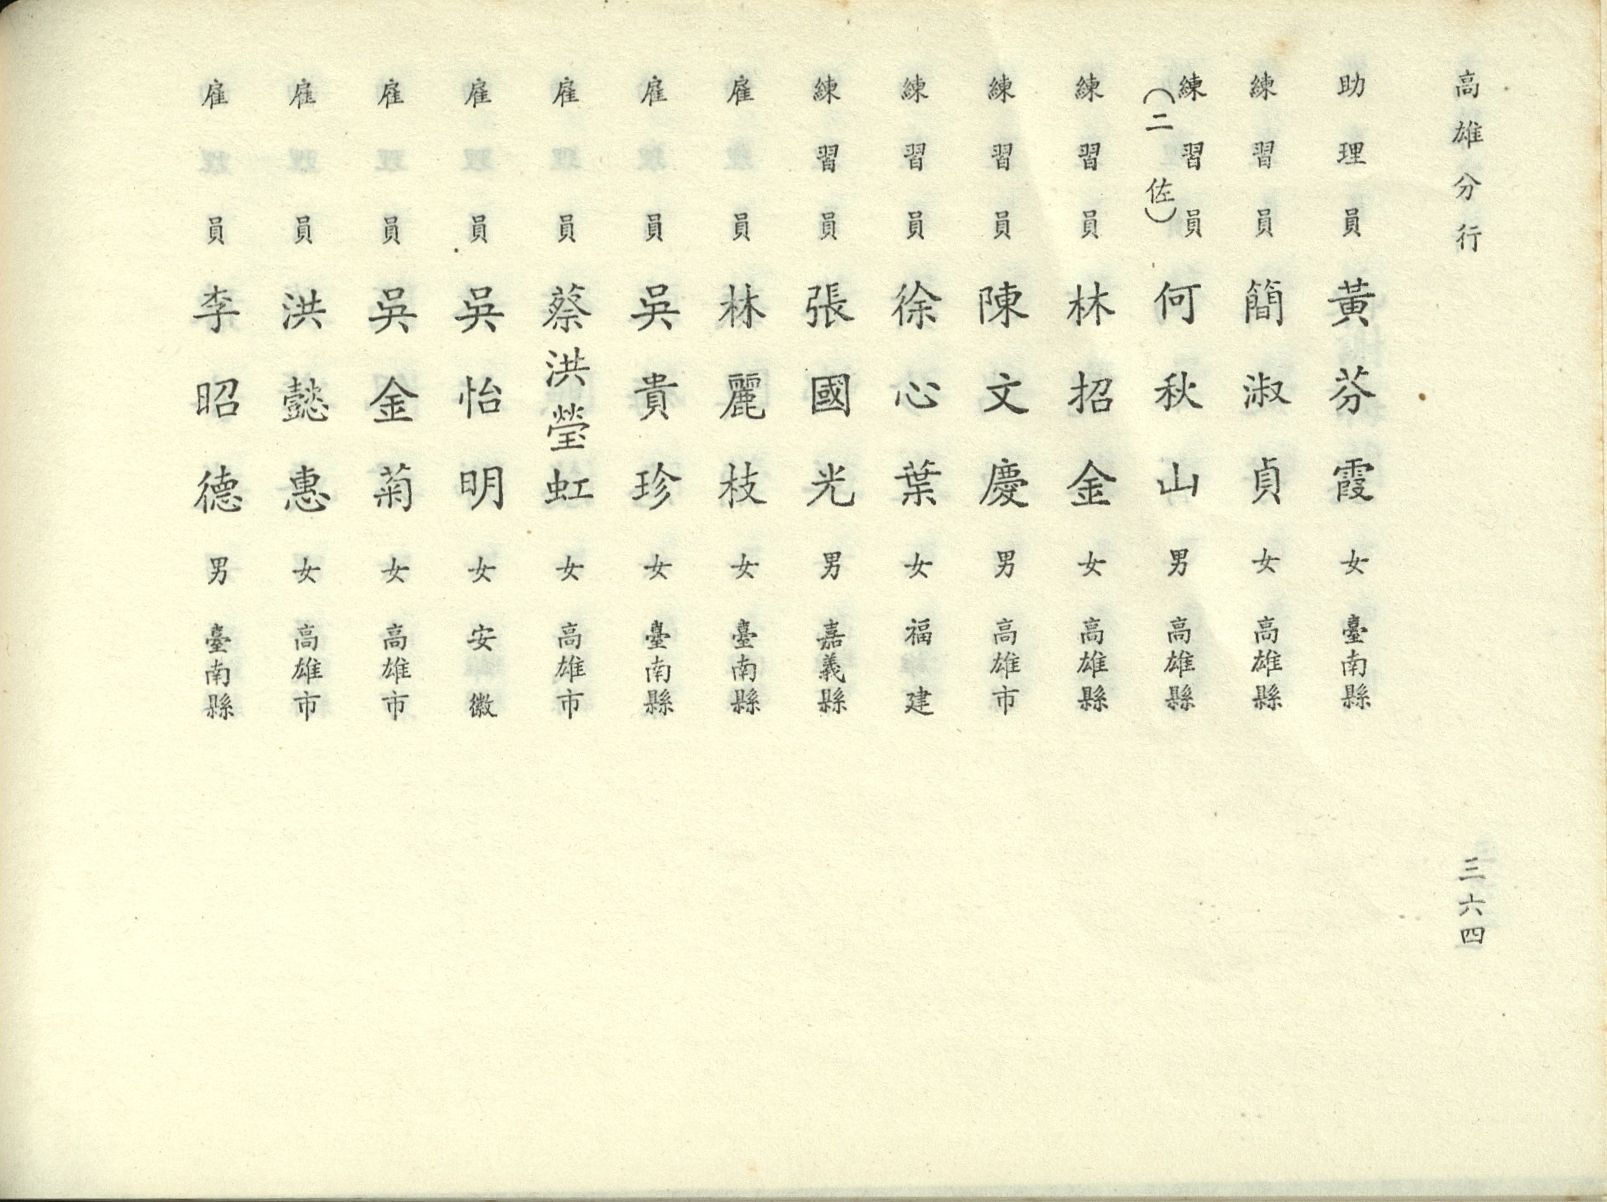 高雄分行
三六四
助理員 黃芬霞 女 臺南縣
練習員 簡淑貞 女 高雄縣
練習員（二佐） 何秋山 男 高雄縣
練習員 林招金 女 高雄縣
練習員 陳文慶 男 高雄市
練習員 徐心葉 女 福建
練習員 張國光 男 嘉義縣
雇員 林麗枝 女 臺南縣
雇員 吳貴珍 女 臺南縣
雇員 蔡洪瑩虹 女 高雄市
雇員 吳怡明 女 安徽
雇員 吳金菊 女 高雄市
雇員 洪懿惠 女 高雄市
雇員 李昭德 男 臺南縣